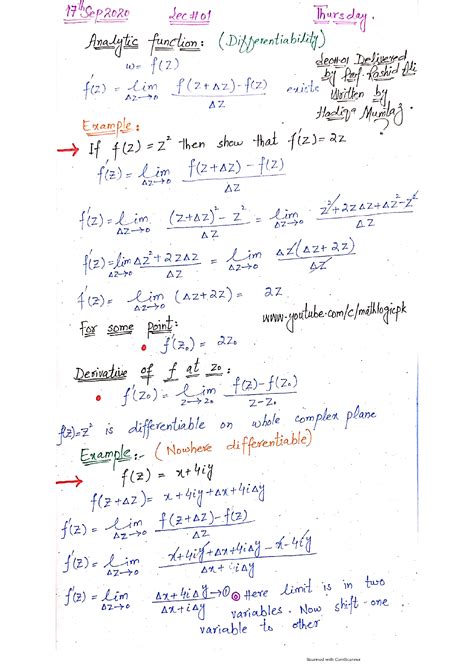 17th Sep 2020 Lec#01 Thursday.
Analytic function: (Differentiability)
w = f(z)
f'(z) = lim Δz→0 f(z+Δz)-f(z) / Δz exists
Lec#01 Delivered
by Prof. Rashid Ali
Written by
Hadiqa Mumtaz.
Example:
→ If f(z) = z² then show that f'(z) = 2z ?
f'(z) = lim Δz→0 f(z+Δz) - f(z) / Δz
f'(z) = lim Δz→0 (z+Δz)² - z² / Δz = lim Δz→0 z²+2zΔz+Δz²-z² / Δz
f'(z) = lim Δz→0 Δz²+2zΔz / Δz = lim Δz→0 Δz(Δz+2z) / Δz
f'(z) = lim Δz→0 (Δz+2z) = 2z
www.youtube.com/c/mathlogicpk
For some point:
• f'(z₀) = 2z₀
Derivative of f at z₀:
• f'(z₀) = lim z→z₀ f(z)-f(z₀) / z-z₀
f(z)=z² is differentiable on whole complex plane
Example:- (Nowhere differentiable)
→ f(z) = x+4iy
f(z+Δz) = x+4iy+Δx+4iΔy
f'(z) = lim Δz→0 f(z+Δz)-f(z) / Δz
f'(z) = lim Δz→0 x+4iy+Δx+4iΔy-x-4iy / Δx+iΔy
f'(z) = lim Δz→0 Δx+4iΔy / Δx+iΔy →① Here limit is in two
variables. Now shift one
variable to other
Scanned with CamScanner